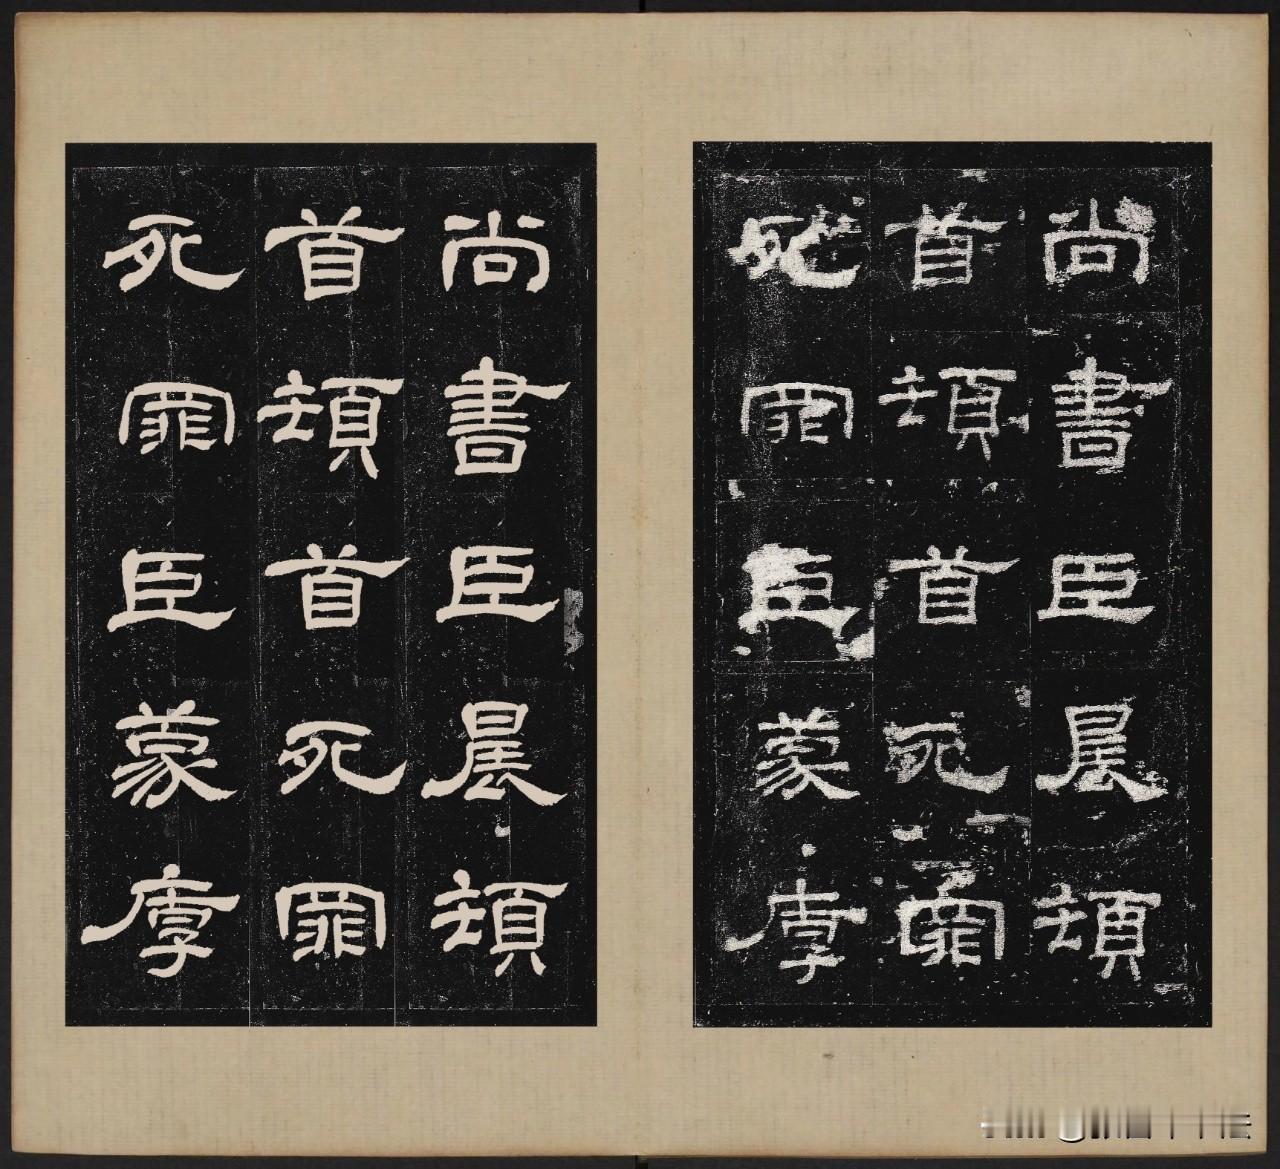 尚書臣晨頓
首頓首死罪
死罪臣蒙厚
尚書臣晨頓
首頓首死罪
死罪臣蒙厚